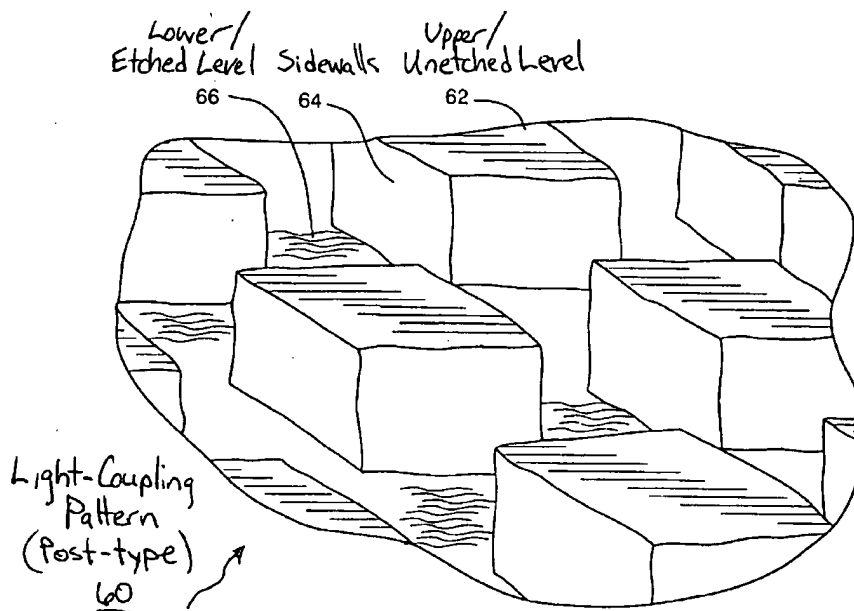 Lower/
Etched Level
66
Sidewalls
64
Upper/
Unetched Level
62
Light-Coupling
Pattern
(Post-type)
60